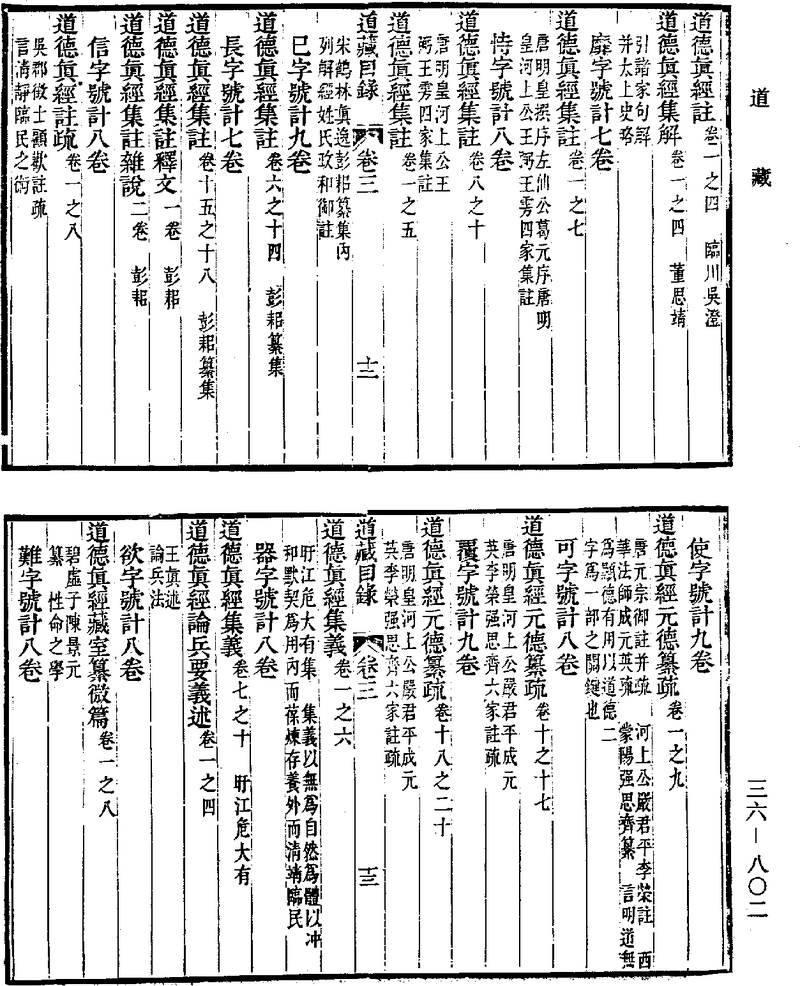 道藏
道德眞經註卷一之四 臨川吳澄
道德眞經集解卷一之四 董思靖
引諸家句解
并太上史畧
靡字號計七卷
道德眞經集註卷一之七
唐明皇撰序左仙公葛元序唐明
皇河上公王弼王雱四家集註
恃字號計八卷
道德眞經集註卷八之十
唐明皇河上公王
弼王雱四家集註
道德眞經集註卷一之五
道藏目錄 卷三 十二
宋鶴林眞逸彭耜纂集內
列解經姓氏政和御註
已字號計九卷
道德眞經集註卷六之十四 彭耜纂集
長字號計七卷
道德眞經集註卷十五之十八 彭耜纂集
道德眞經集註釋文一卷 彭耜
道德眞經集註雜說二卷 彭耜
信字號計八卷
道德眞經註疏卷一之八
吳郡徵士顧歡註疏
言清靜臨民之術
使字號計九卷
道德眞經元德纂疏卷一之九
唐元宗御註并疏 河上公嚴君平李榮註 西
華法師成元英疏 蒙陽强思齊纂 言明道無
爲顯德有用以道德二
字爲一部之關鍵也
可字號計八卷
道德眞經元德纂疏卷十之十七
唐明皇河上公嚴君平成元
英李榮强思齊六家註疏
覆字號計九卷
道德眞經元德纂疏卷十八之二十
唐明皇河上公嚴君平成元
英李榮强思齊六家註疏
道藏目錄 卷三 十三
道德眞經集義卷一之六
盱江危大有集 集義以無爲自然爲體以冲
和默契爲用內而葆煉存養外而清靖臨民
器字號計八卷
道德眞經集義卷七之十 盱江危大有
道德眞經論兵要義述卷一之四
王眞述
論兵法
欲字號計八卷
道德眞經藏室纂微篇卷一之八
碧虛子陳景元
纂 性命之學
難字號計八卷
三六—八〇二